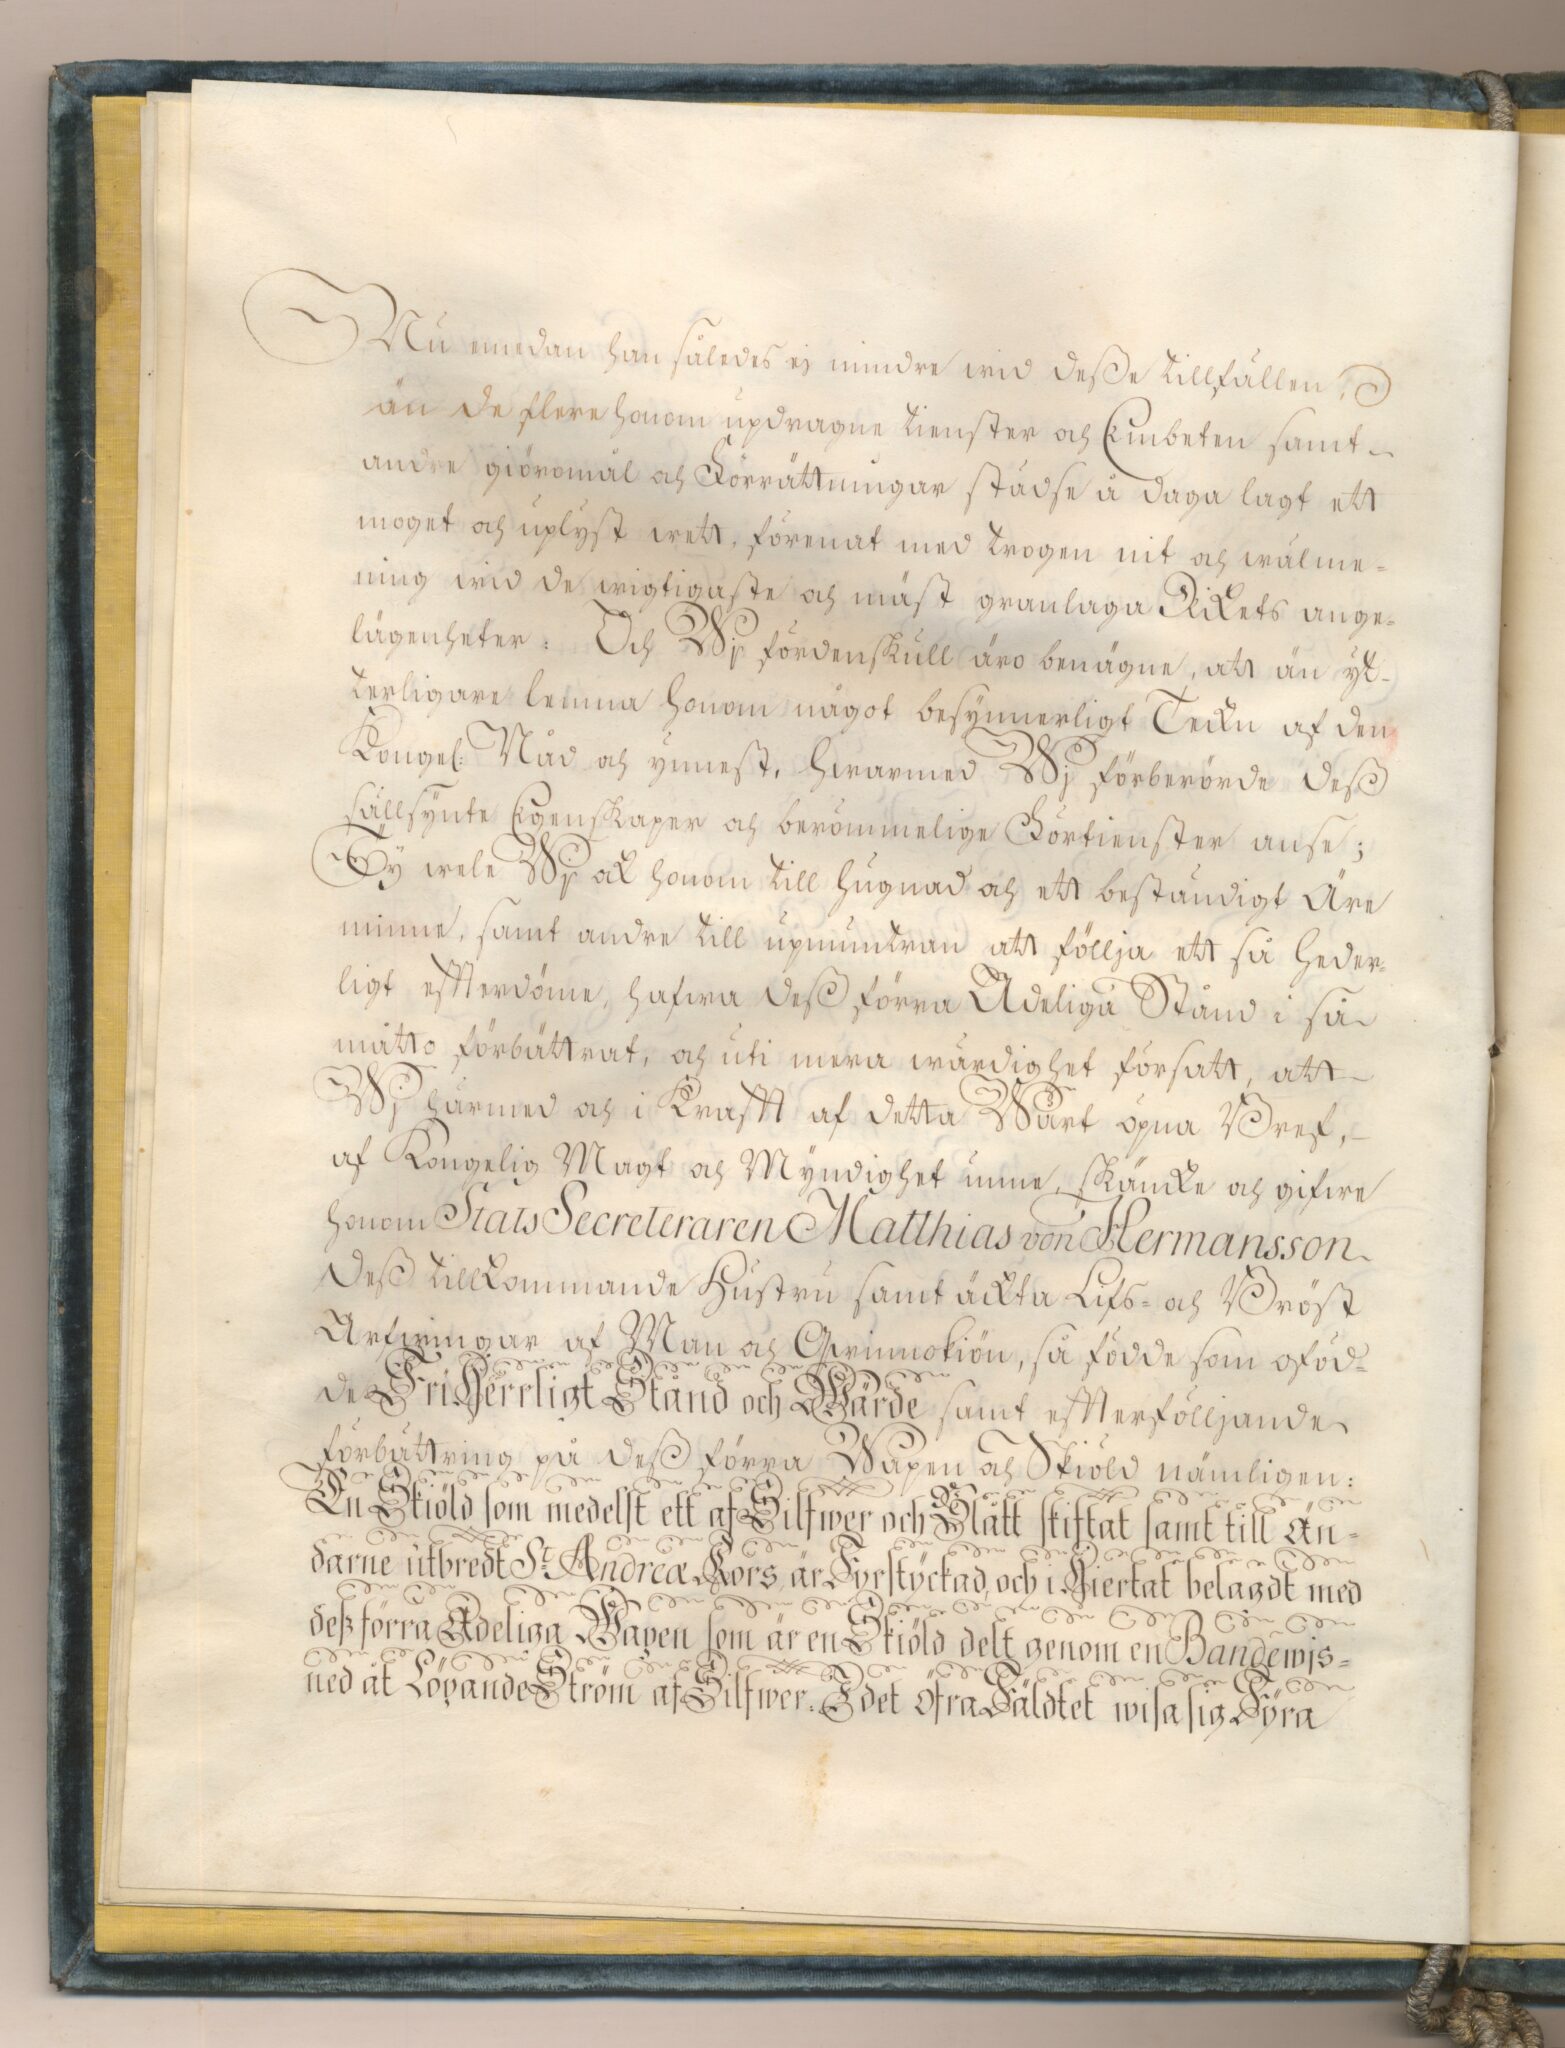 Nu emedan han således ej mindre wid deße tillfällen,
än de flere honom updragne tienster och Embeten samt
andre giöromål och Förrättningar städse å daga lagt ett
moget och uplyst wett, förenat med trogen nit och wälme-
ning wid de wigtigaste och mäst granlaga Rikets ange-
lägenheter: Och Wj fördenskull äro benägne, att än yt-
terligare lemna honom något besynnerligt Tecken af den
Kongel: Nåd och ynnest, hwarmed Wj förberörde deß
sällsynte Egenskaper och berömmelige Förtienster anse;
Ty wele Wj ock honom till hugnad och ett beständigt Äre
minne, samt andre till upmuntran att föllja ett så heder-
ligt effterdöme, hafwa deß förra Adeliga Stånd i så
måtto förbättrat, och uti mera wärdighet försatt, att
Wj härmed och i Krafft af detta Wårt öpna Bref,
af Kongelig Magt och Myndighet unne, skäncke och gifwe
honom Stats Secreteraren Matthias von Hermansson
deß tillkommande Hustru samt äckta Lifs- och Bröst
Arfwingar af Man och Qwinnokiön, så födde som oföd-
de Fri Herrligt Stånd och Wärde samt effterfölljande
förbättring på deß förra Wapen och Skiöld nämligen:
En Skiöld som medelst ett af Silfwer och Blått skiftat samt till Än-
darne utbredt St. Andreæ Kors, är Fyrstyckad, och i Hiertat belagdt med
deß förra Adeliga Wapen som är en Skiöld delt genom en Bandewjs-
ned åt Löpande Ström af Silfwer. I det öfra Fäldtet wisa sig Fyra